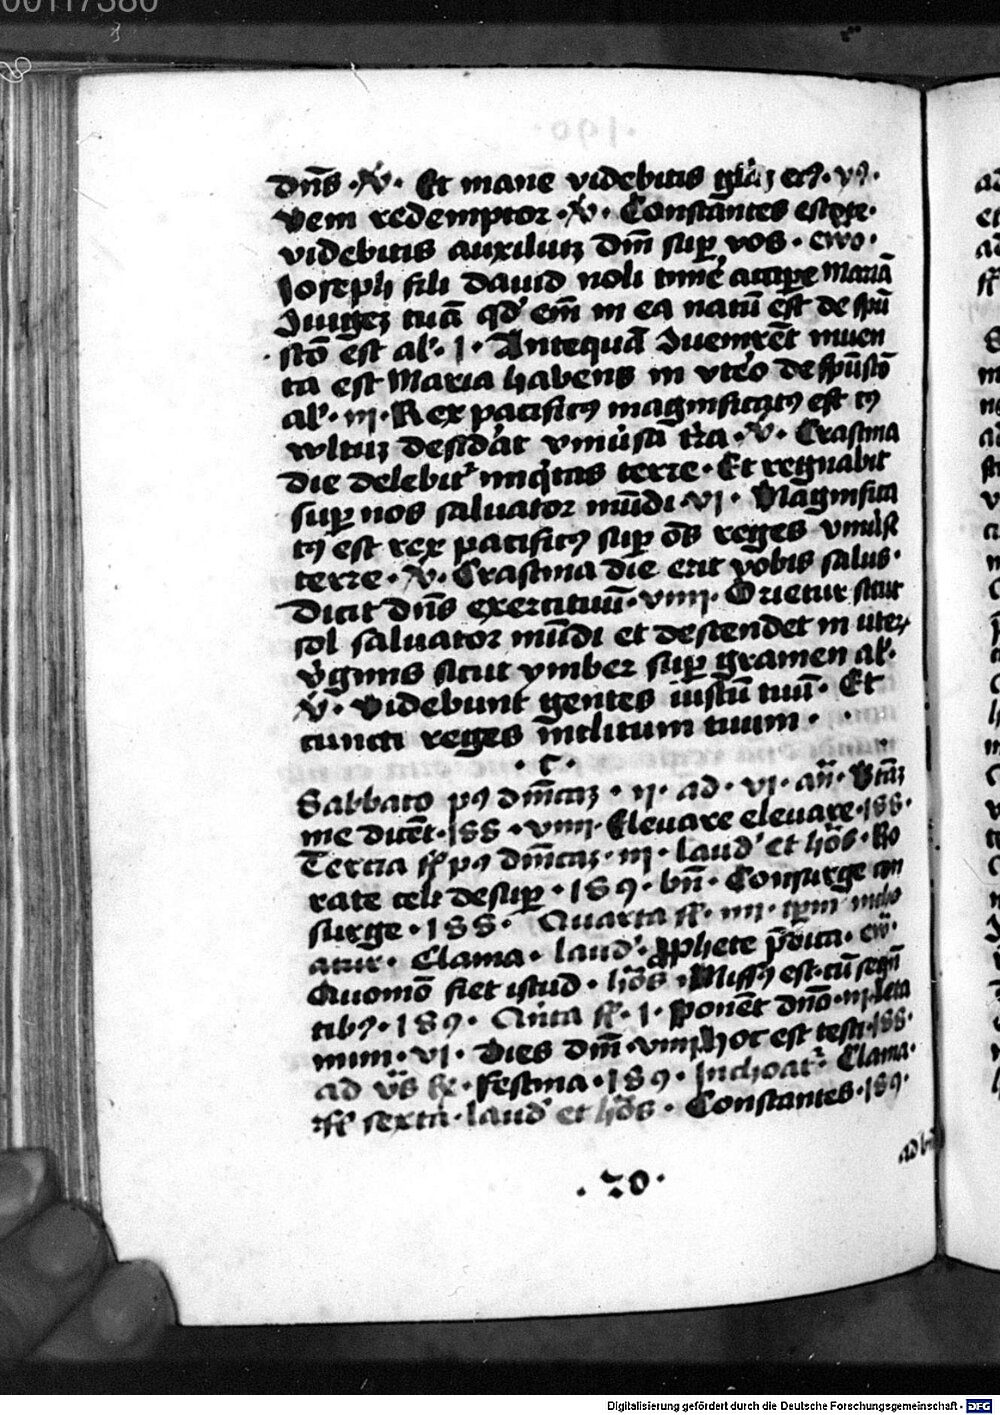 dn̄s · ꝟ · Et mane videbitis gl̄iaꝫ eiꝰ · yꝰ ·
Vem redemptor · ꝟ · Constantes estote ·
videbitis auxiliuꝫ dn̄i suꝑ vos · ewo ·
Joseph fili dauid noli timē accipe mariā
Jiugeꝫ tuā qd̛ em̄ in ea natū est de spū
stō est al̛ · 1 · Antequā Juenirēt inuen
ta est Maria habens in vteō de spūstō
al̛ · iii · Rex pacificꝰ magnificatꝰ est cꝰ
wltuꝫ desid̛at vniūsa tr̄a · ꝟ · Crastina
die delebit᷑ iniq̇tas terre · Et regnabit
suꝑ nos saluator mūdi · vi · Magnifica
tꝰ est rex pacificꝰ suꝑ om̄s reges vniūse
terre · ꝟ · Crastina die erit vobis salus ·
dicit dn̄s exercituū · viiii · Orietur sicut
sol saluator mūdi et descendet in uter
v̄ginis sicut ymber suꝑ gramen al̛ ·
ꝟ · Videbunt gentes iustū tuū · Et
cuncti reges inclitum tuum ·
· C ·
Sabbato pꝰ dn̄icaꝫ · ii · ad · vi · an̄ · Btāꝫ
me dicēt · 188 · viiii · Eleuare eleuare · 188 ·
Tercia fr̄ pꝰ dn̄icaꝫ · iii · laud̛ et hōs · Ro
rate celi desuꝑ · 189 · bn̄ · Consurge con
surge · 188 · Quarta fr̄ · iiii · tp̄m incho
atur · Clama · laud̛ · Prophete p̄dica · ew̄ ·
Quomō fiet istud · hōs · Missꝰ est · cū seqn̄
tibꝰ · 189 · Qūita fr̄ · 1 · Ponēt dn̄o · iii · Leta
mini · vi · Dies dn̄i · viiii Hoc est testi · 188 ·
ad v̄s · Festina · 189 · Inchoat᷑ · Clama ·
fr̄ sexta · laud̛ et hōs · Constantes · 189 ·
ad bn̄
· 20 ·
Digitalisierung gefördert durch die Deutsche Forschungsgemeinschaft · DFG